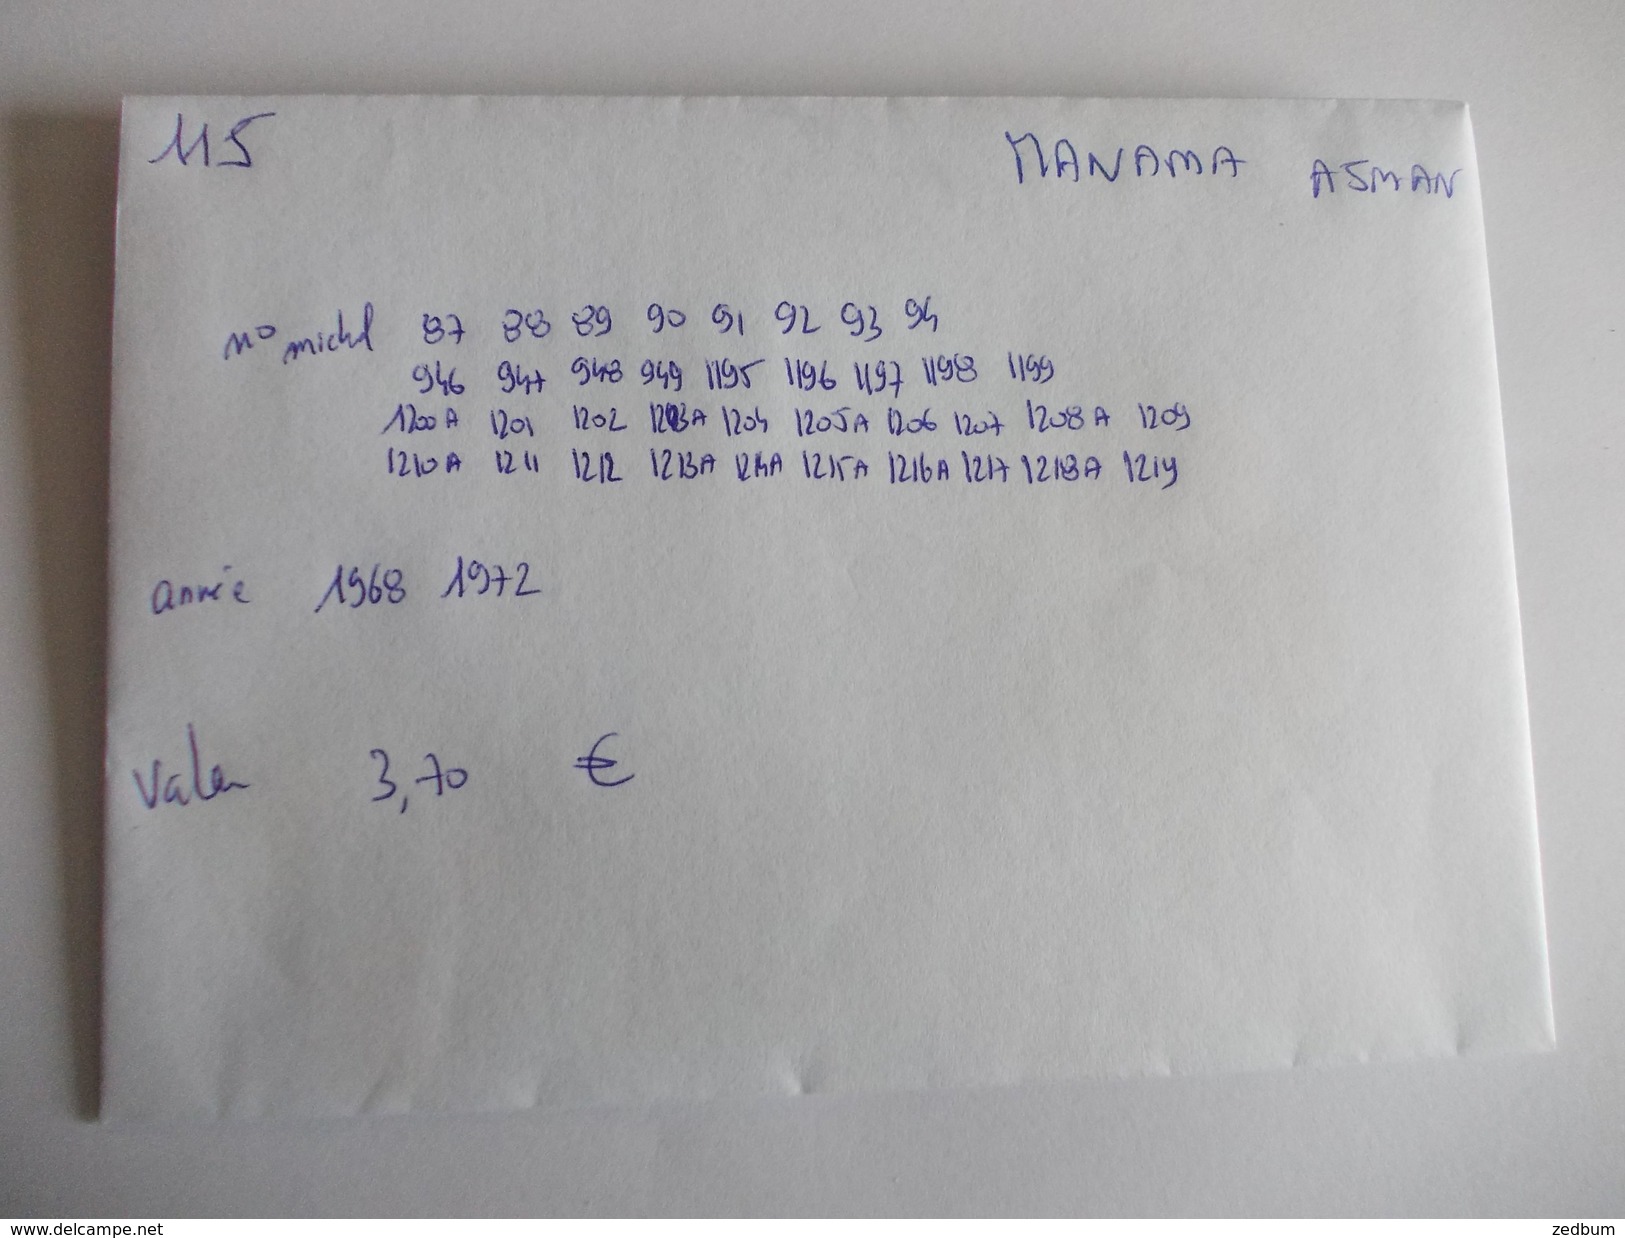 115 MANAMA ASMAN
no michel 87 88 89 90 91 92 93 94
946 947 948 949 1195 1196 1197 1198 1199
1200A 1201 1202 1203A 1204 1205A 1206 1207 1208A 1209
1210A 1211 1212 1213A 1214A 1215A 1216A 1217 1218A 1219
année 1968 1972
Valeur 3,70 €
www.delcampe.net zedbum